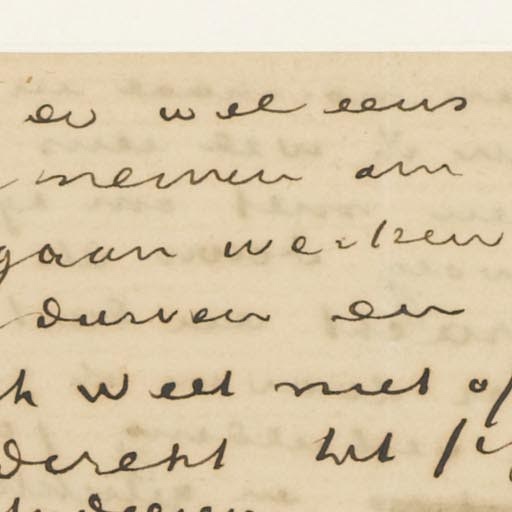 er wel eens
nemen om
gaan werken
durven en
weet niet of
direkt tot